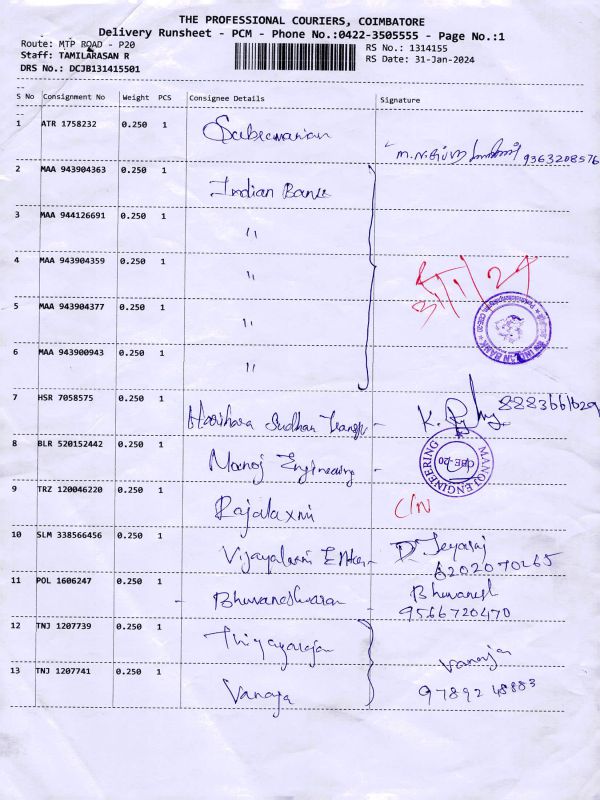 THE PROFESSIONAL COURIERS, COIMBATORE
Delivery Runsheet - PCM - Phone No.:0422-3505555 - Page No.:1
Route: MTP ROAD - P20 RS No.: 1314155
Staff: TAMILARASAN R RS Date: 31-Jan-2024
DRS No.: DCJB131415501
S No Consignment No Weight PCS Consignee Details Signature
1 ATR 1758232 0.250 1
9363208576
2 MAA 943904363 0.250 1 Indian Bank
3 MAA 944126691 0.250 1 "
4 MAA 943904359 0.250 1 " 31/1/24
5 MAA 943904377 0.250 1 "
INDIAN BANK
6 MAA 943900943 0.250 1 "
7 HSR 7058575 0.250 1 Harihara Sudhan - K. 8883661629
8 BLR 520152442 0.250 1 Manoj Engineering - MANOJ ENGINEERING CBE-20
9 TRZ 120046220 0.250 1 Rajalaxmi C/N
10 SLM 338566456 0.250 1 Vijayalaxmi - D Jeyaraj
11 POL 1606247 0.250 1 - Bhuvaneshwaran - Bhuvanesh
9566720470
12 TNJ 1207739 0.250 1 Thiyagarajan
Vanaja
13 TNJ 1207741 0.250 1 Vanaja 97892 48883